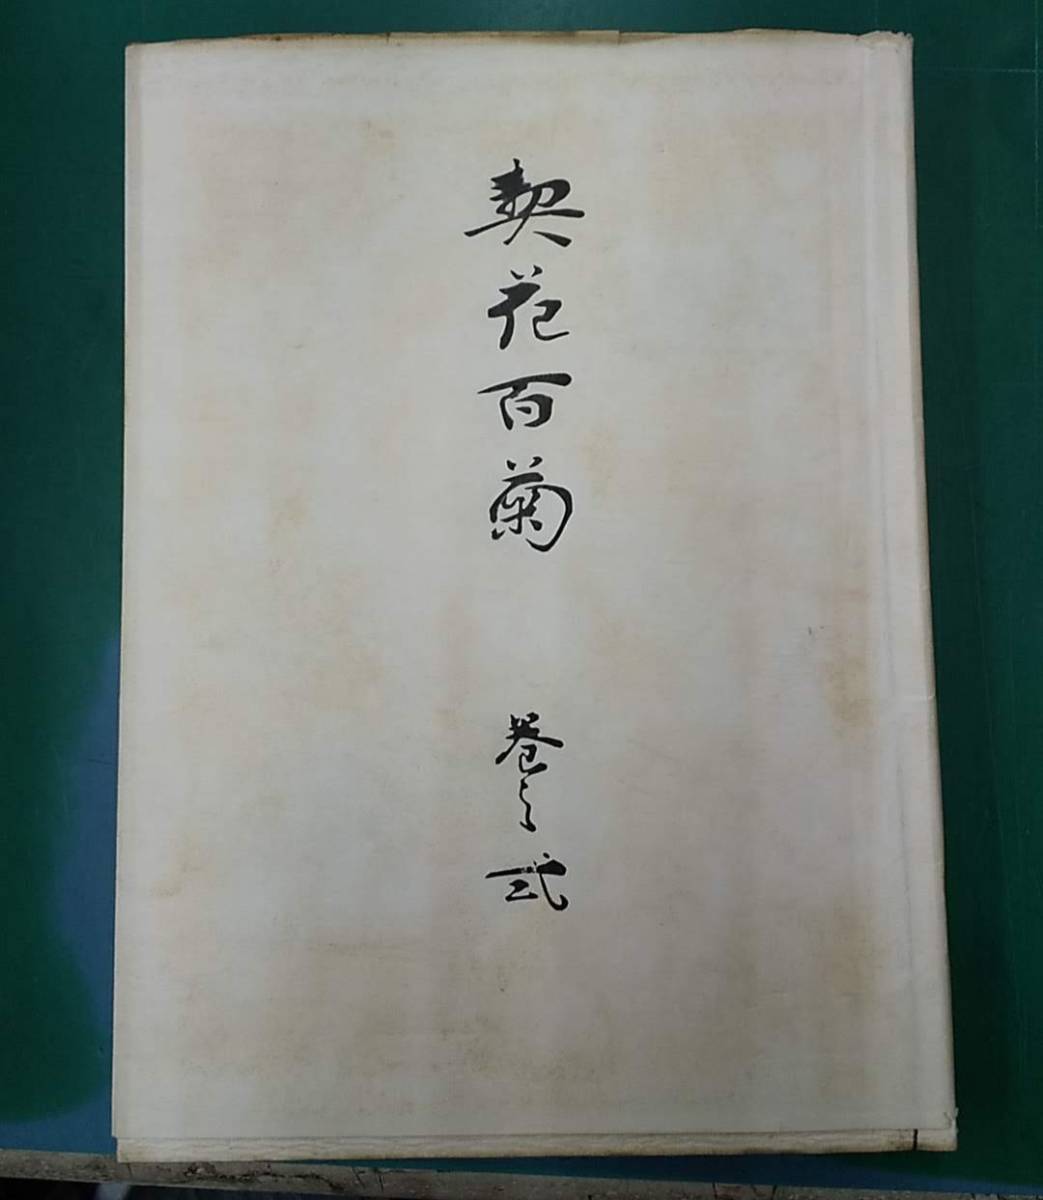 契花百菊 巻之弐